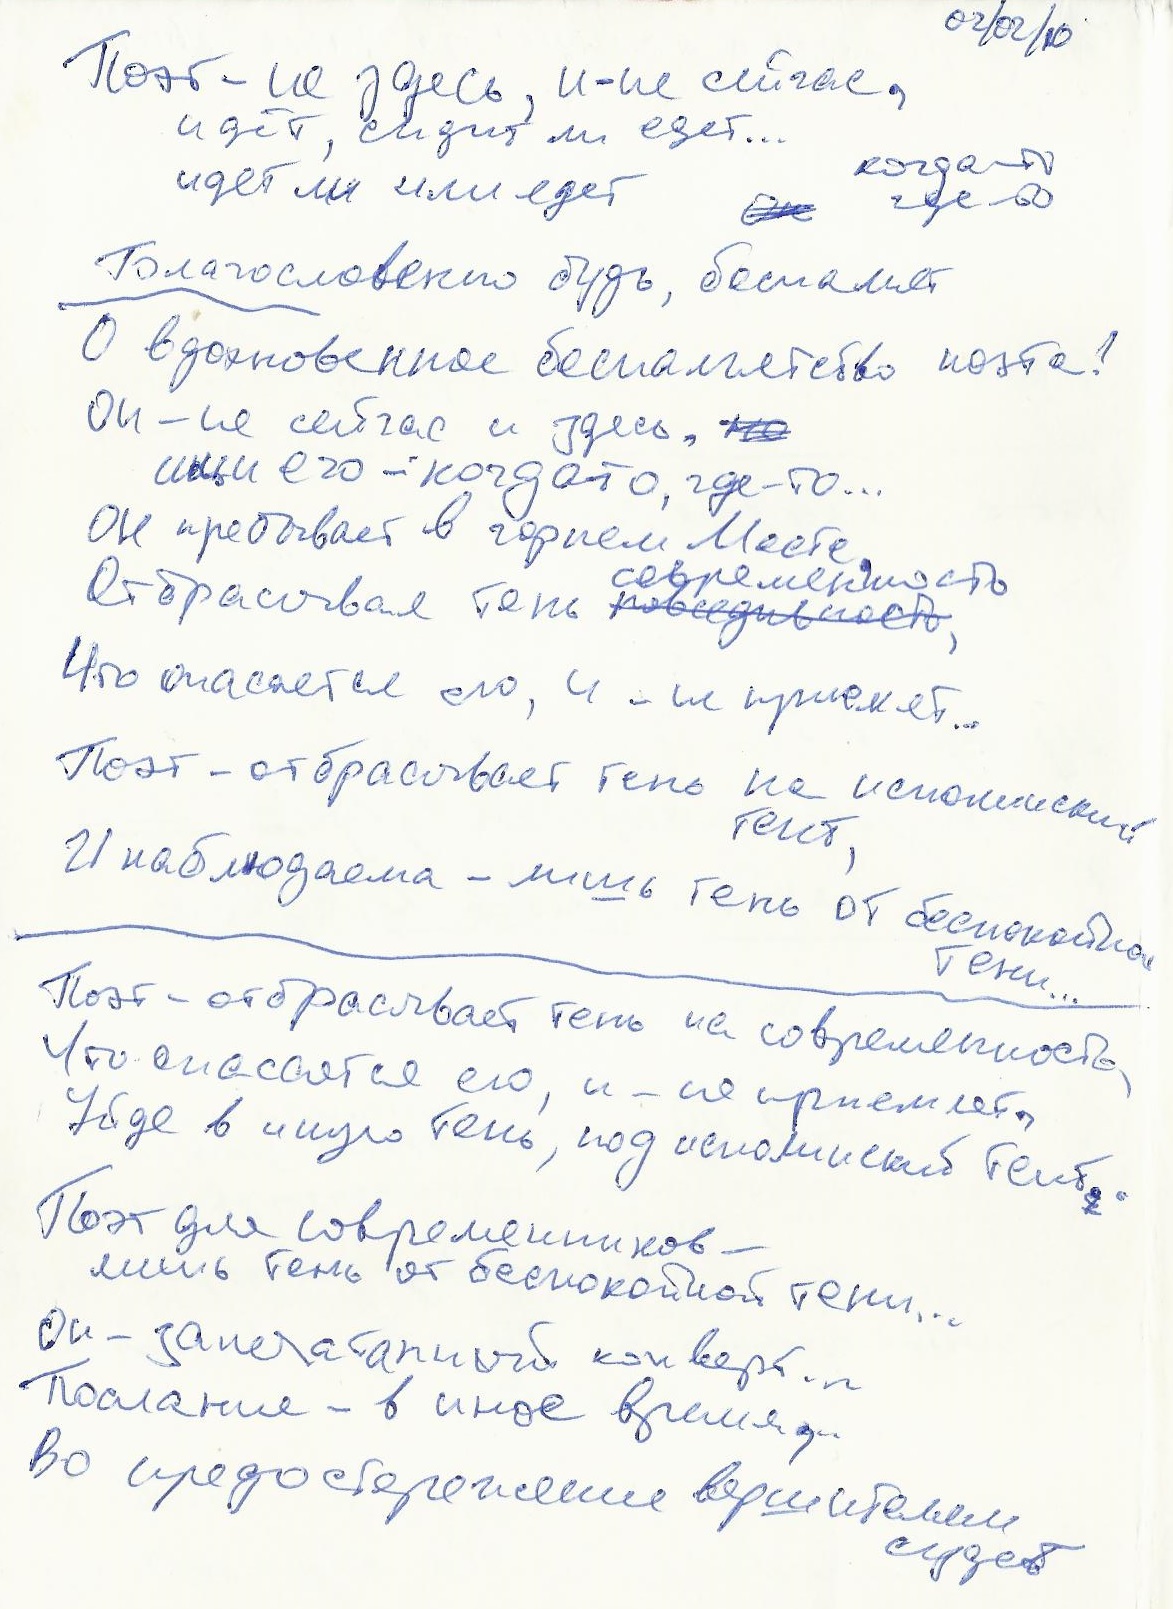 02/02/10
Поэт – не здесь, и – не сейчас,
идёт, сидит ли едет...
идет ли или едет
когда-то
где-то
Благословенно будь, беспамят
О вдохновенное беспамятство поэта!
Он – не сейчас и здесь,
ищи его – когда-то, где-то...
Он пребывает в горнем Месте,
современность
Отбрасывая тень повседневность,
Что опасается его, и – не приемлет...
Поэт – отбрасывает тень на исполинский
тент,
И наблюдаема – лишь тень от беспокойной
тени...
Поэт – отбрасывает тень на современность,
Что опасается его, и – не приемлет,
Уйдя в иную тень, под исполинский тент..
Поэт для современников –
лишь тень от беспокойной тени...
Он – запечатанный конверт...
Послание – в иное время...
Во предостережение вершителям
судеб